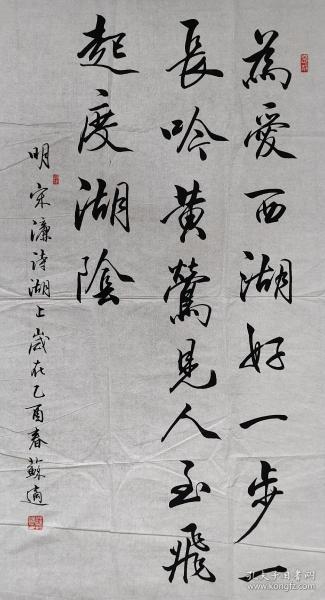 為愛西湖好一步一
長吟黄鶯見人至飛
起度湖陰
明宋濂诗湖上歲在乙酉春蘇適
孔夫子旧书网
www.kongfz.com